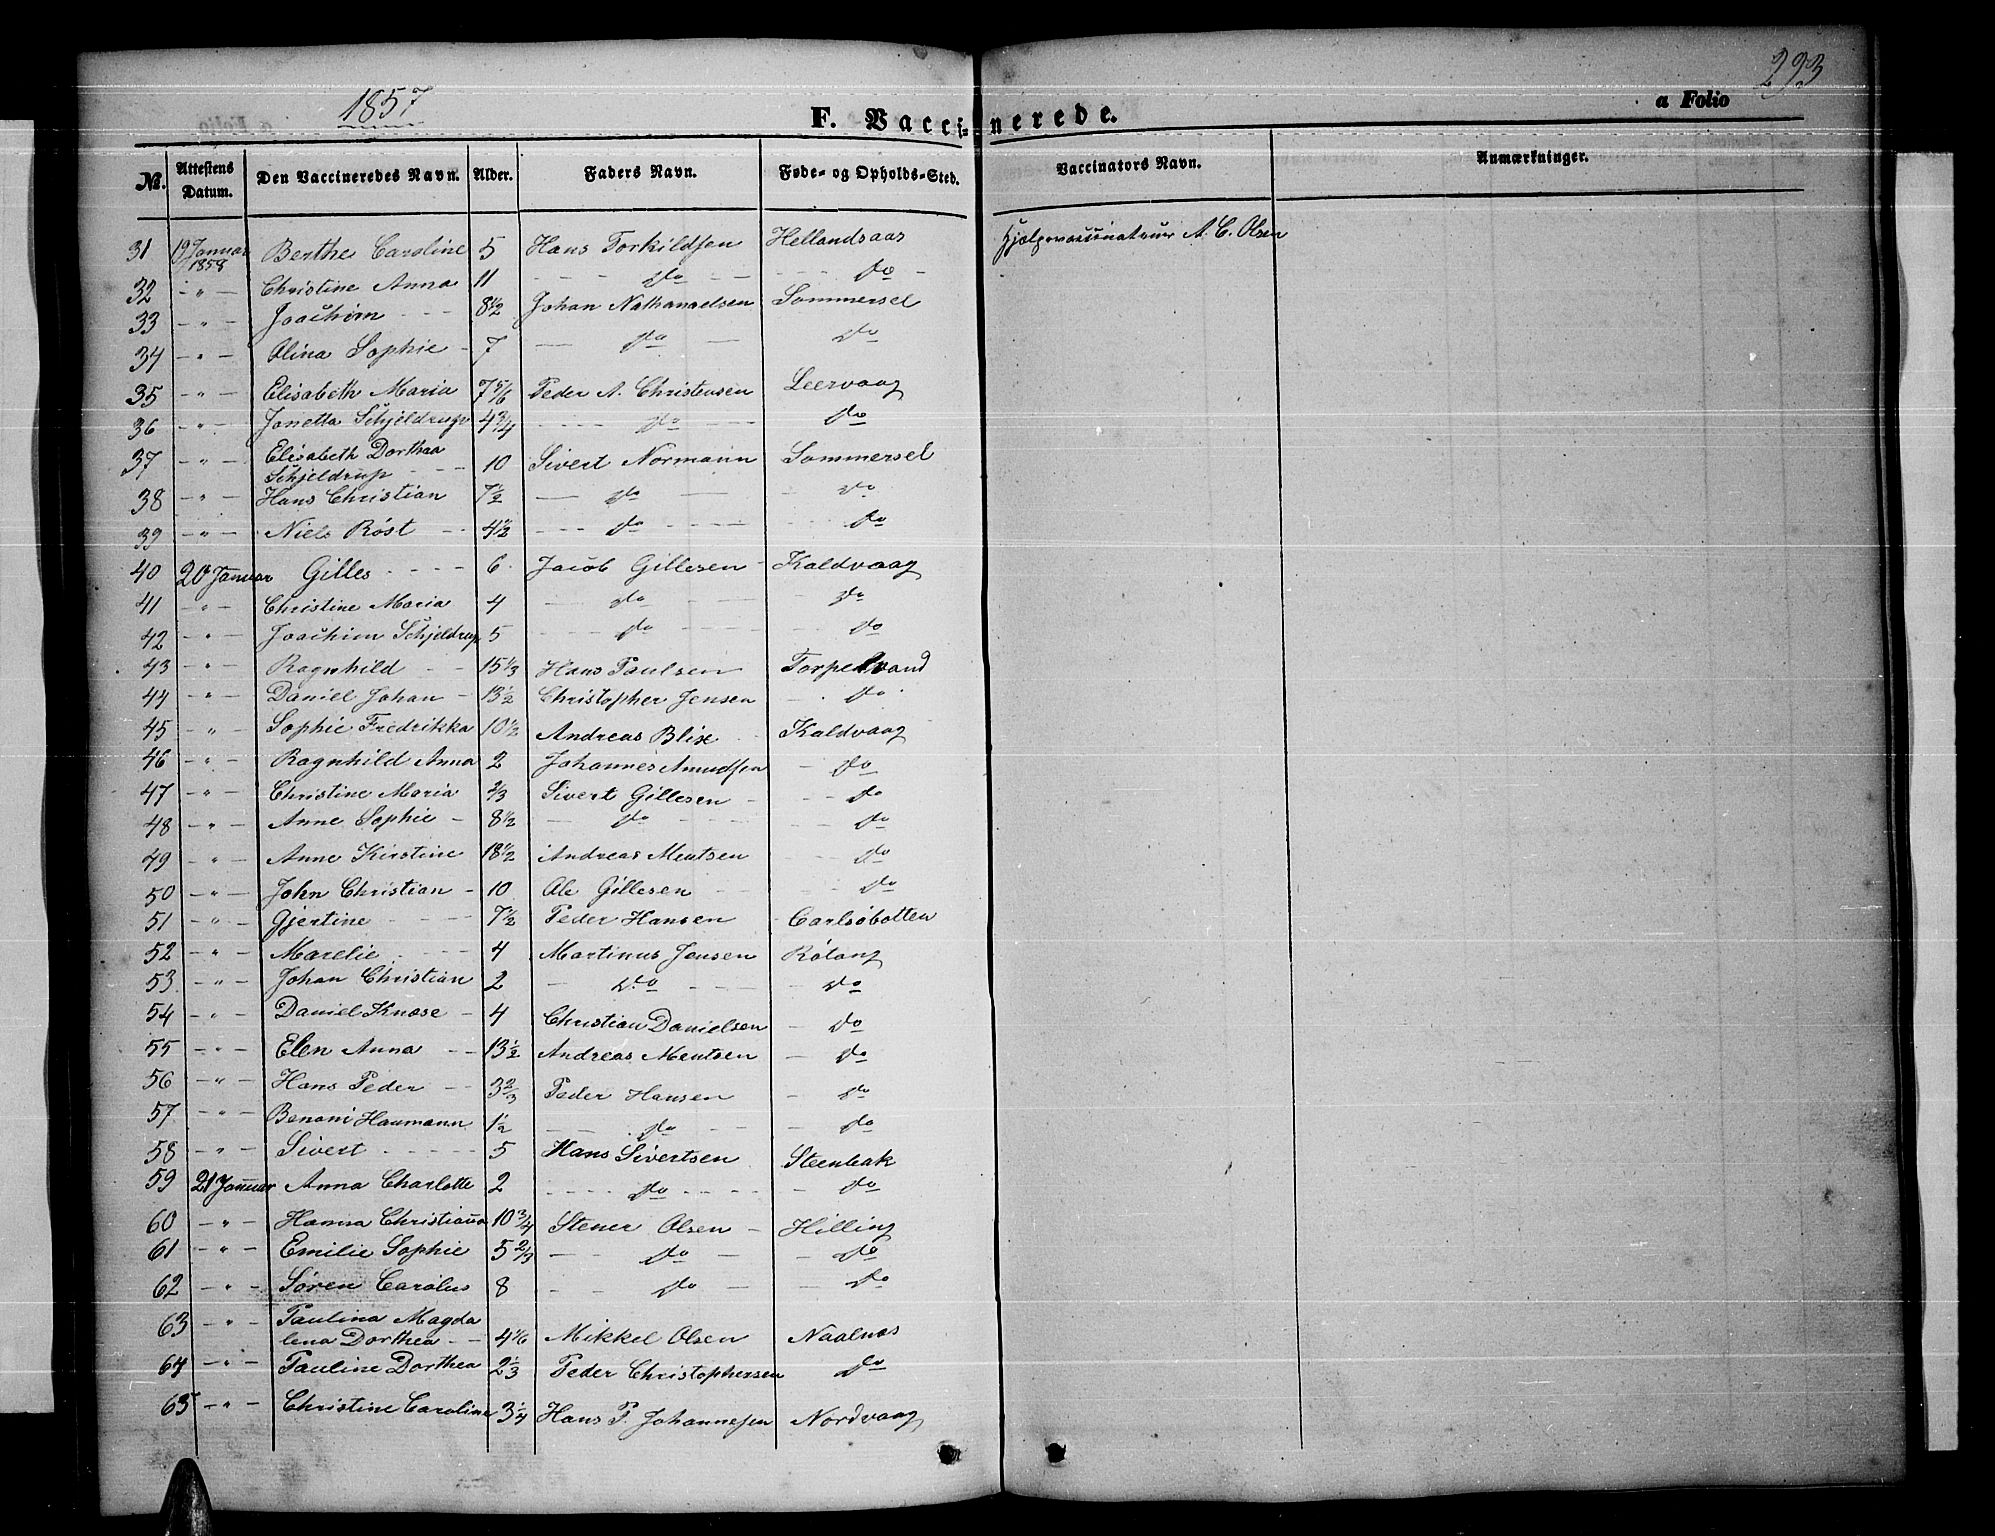 1857
293
F. Vaccinerede.
a Folio
No. Attestens Datum. Den Vaccineredes Navn. Alder. Faders Navn. Føde- og Opholds-Sted. Vaccinators Navn. Anmærkninger.
31 19 Januar 1858 Berthe Caroline 5 Hans Torkildsen Hellandsaas Hjælpevaccinateur A. C. Olsen
32 - " - Christine Anna 11 - Do - Do -
33 - " - Joachim 8 1/2 Johan Nathanaelsen Sommersel
34 - " - Olina Sophie - 7 - Do - Do
35 - " - Elisabeth Maria 7 5/6 Peder A. Christensen Leervaag
36 - " - Janetta Schjeldrup 4 3/4 - Do - Do
37 - " - Elisabeth Dorthaa
Schjeldrup - 10 Sivert Normann Sommersel
38 - " - Hans Christian 7 1/2 - Do - Do
39 - " - Niels Røst - 4 1/2 - Do - Do
40 20 Januar Gilles - 6 Jacob Gillesen - Kaldvaag
41 - " - Christine Maria 4 - Do - Do
42 - " - Joachim Schjeldrup 5 - Do - Do
43 - " - Ragnhild - 15 1/3 Hans Paulsen Torpelvand
44 - " - Daniel Johan - 13 1/2 Christopher Jensen - Do
45 - " - Sophie Fredrikka 10 1/2 Andreas Blix - Kaldvaag
46 - " - Ragnhild Anna 2 Johannes Amundsen - Do
47 - " - Christine Maria 2/3 Sivert Gillesen - Do
48 - " - Anne Sophie - 8 1/2 - Do - Do
49 - " - Anne Kirstine 18 1/2 Andreas Mentsen - Do
50 - " - John Christian - 10 Ole Gillesen - Do
51 - " - Gjertine - 7 1/2 Peder Hansen - Carlsöbotten
52 - " - Marelie - 4 Martinus Jensen Røtang
53 - " - Johan Christian 2 - Do - Do
54 - " - Daniel Knose - 4 Christian Danielsen - Do
55 - " - Elen Anna - 13 1/2 Andreas Mentsen - Do
56 - " - Hans Peder - 3 2/3 Peder Hansen - Do
57 - " - Benoni Haumann 1 1/2 - Do - Do
58 - " - Sivert - 5 Hans Sivertsen Steenbak
59 21 Januar Anna Charlotte 2 - Do - Do
60 - " - Hanna Christianna 10 3/4 Stener Olsen - Hilling
61 - " - Emilie Sophie 5 2/3 - Do - Do
62 - " - Søren Carolus 8 - Do - Do
63 - " - Paulina Magda
lena Dorthea - 4 1/6 Mikkel Olsen Naalnæs
64 - " - Pauline Dorthea 2 1/3 Peder Christophersen Do
65 - " - Christine Carolina 3 1/4 Hans P. Johannesen Nordvaag